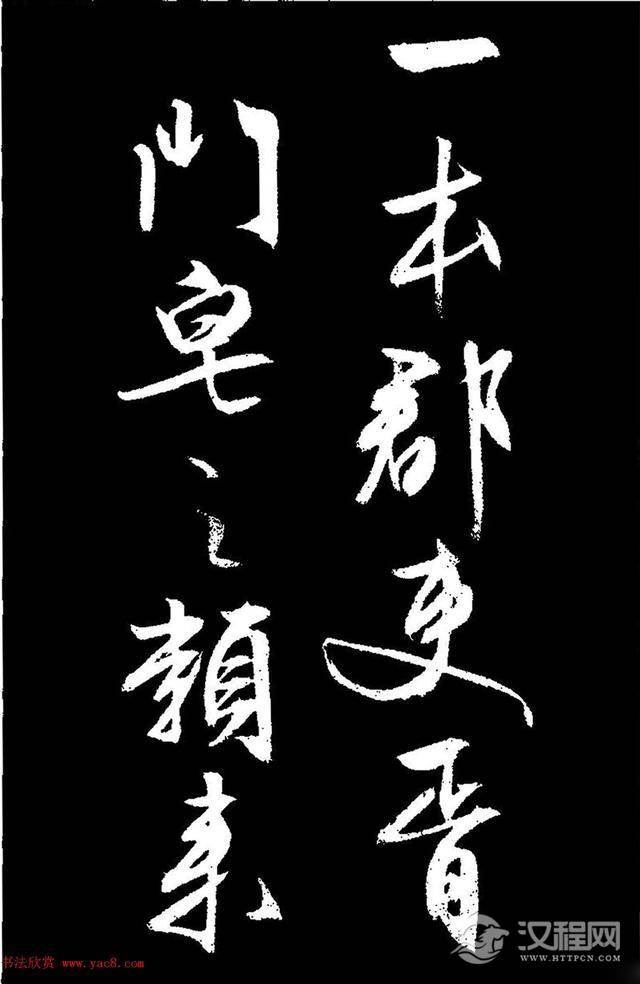 一本郡吏胥
門皂之類来
书法欣赏 www.yac8.com
汉程网
WWW.HTTPCN.COM